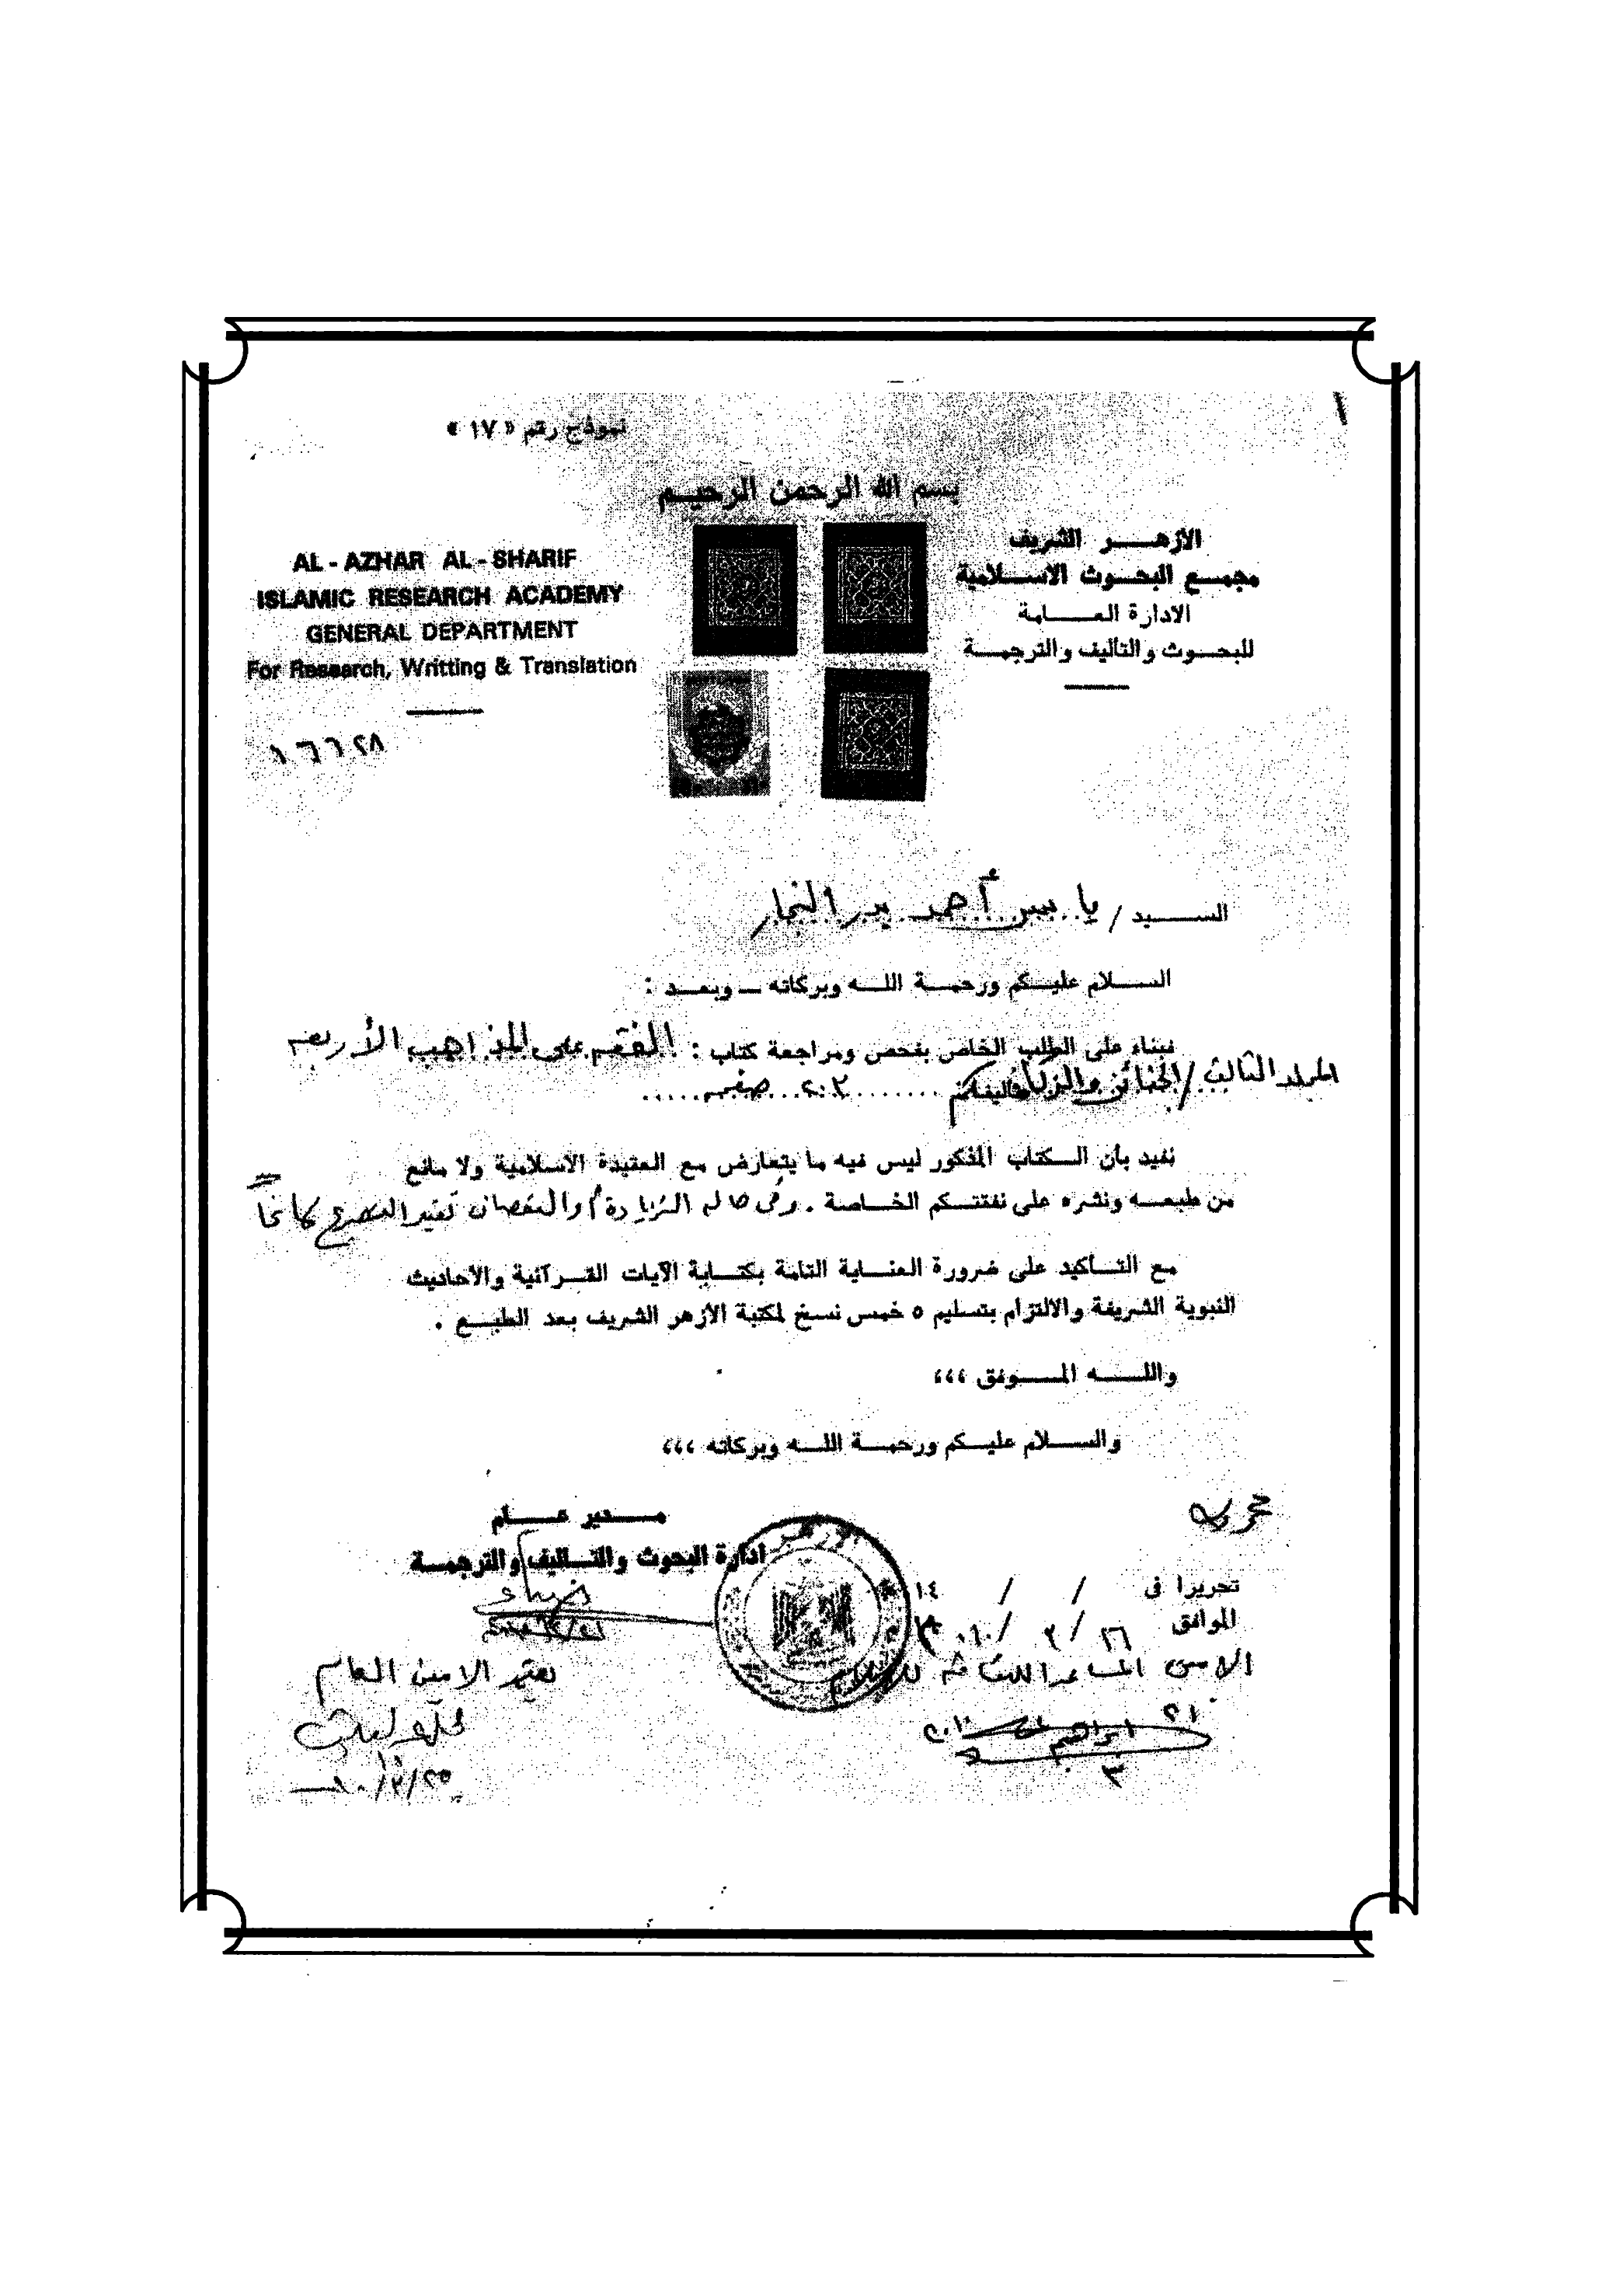 نموذج رقم « ١٧ »
بسم الله الرحمن الرحيم
الازهر الشريف
مجمع البحوث الاسلامية
الادارة العامة
للبحوث والتأليف والترجمة
AL - AZHAR AL - SHARIF
ISLAMIC RESEARCH ACADEMY
GENERAL DEPARTMENT
For Research, Writting & Translation
السيد / ياسر أحمد بدر النجار
السلام عليكم ورحمة الله وبركاته ــ وبعد :
فبناء على الطلب الخاص بفحص ومراجعة كتاب : الفقه على المذاهب الأربعة
المجلد الثالث / الجنائز والزكاة تأليفكم ٢٠٢ صفحه
نفيد بأن الكتاب المذكور ليس فيه ما يتعارض مع العقيدة الاسلامية ولا مانع
من طبعه ونشره على نفقتكم الخاصة . وفى حالة الزيادة أو النقصان يعتبر التصريح لاغياً
مع التأكيد على ضرورة العناية التامة بكتابة الآيات القرآنية والأحاديث
النبوية الشريفة والالتزام بتسليم ٥ خمس نسخ لمكتبة الأزهر الشريف بعد الطبع .
والله الموفق ،،،
والسلام عليكم ورحمة الله وبركاته ،،،
مدير عام
ادارة البحوث والتأليف والترجمة
تحريرا فى / / ١٤
الموافق
يعتمد الامين العام